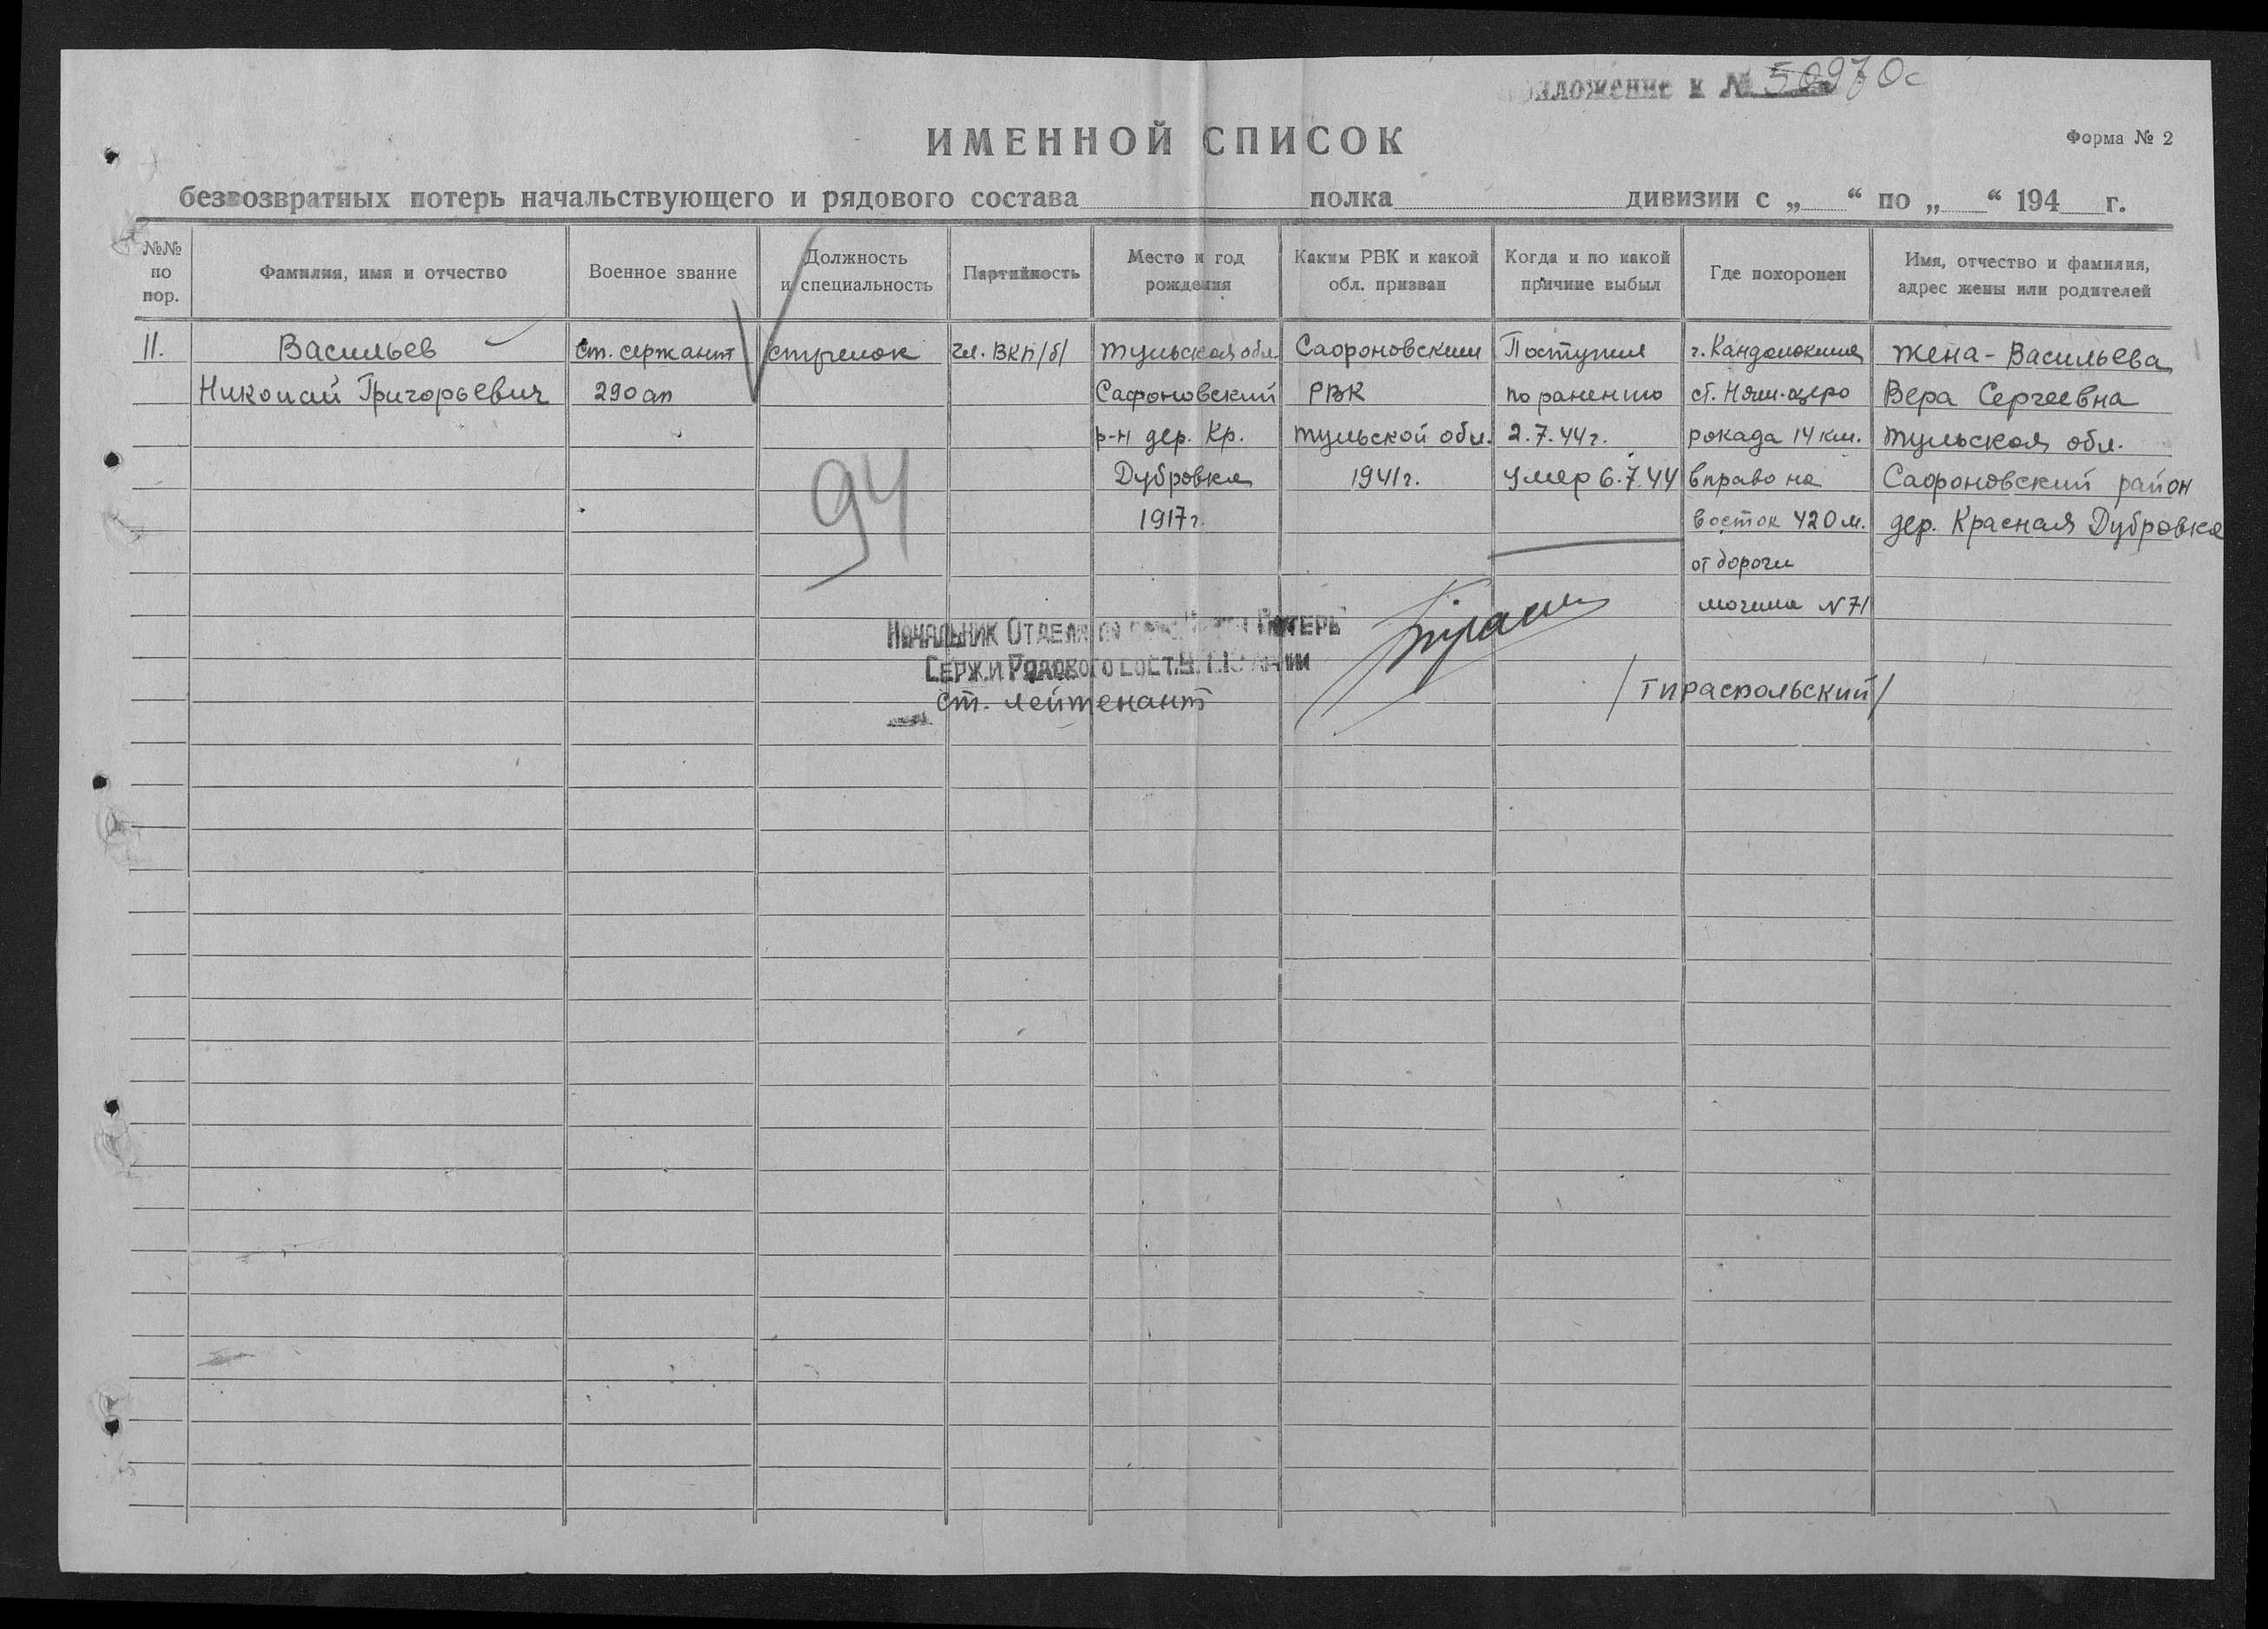 иложение к № 50970с
ИМЕННОЙ СПИСОК
Форма № 2
безвозвратных потерь начальствующего и рядового состава полка дивизии с „ “ по „ “ 194 г.
№№ по пор.
Фамилия, имя и отчество
Военное звание
Должность и специальность
Партийность
Место и год рождения
Каким РВК и какой обл. призван
Когда и по какой причине выбыл
Где похоронен
Имя, отчество и фамилия, адрес жены или родителей
11.
Васильев
Николай Григорьевич
ст. сержант
290 ап
стрелок
чл. ВКП/б/
Тульская обл.
Сафоновский
р-н дер. Кр.
Дубровка
1917г.
Сафроновским
РВК
Тульской обл.
1941г.
Поступил
по ранению
2.7.44г.
умер 6.7.44
г. Кандалакша
ст. Ням-озеро
рокада 14 км.
вправо на
восток 420 м.
от дороги
могила N 71
жена - Васильева
Вера Сергеевна
Тульская обл.
Сафроновский район
дер. Красная Дубровка
94
Начальник Отдела по потерь
Серж. и Рядового сост.
ст. лейтенант
/Тираспольский/